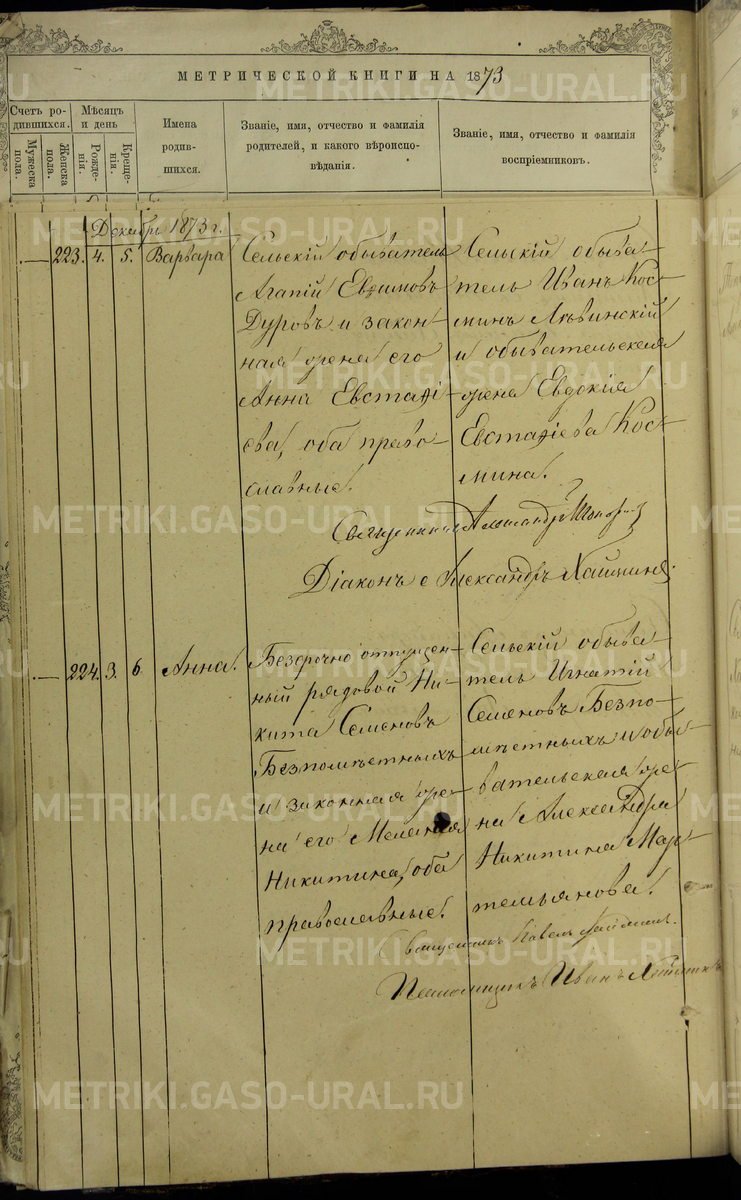 МЕТРИЧЕСКОЙ КНИГИ НА 1873
Счетъ ро-
дившихся.
Мужеска
пола.
Женска
пола.
Мѣсяцъ
и день
Рожде-
нія.
Креще-
нія.
Имена
родив-
шихся.
Званіе, имя, отчество и фамилія
родителей, и какого вѣроиспо-
вѣданія.
Званіе, имя, отчество и фамилія
воспріемниковъ.
Декабрь 1873 г.
223. 4. 5. Варвара
Сельскій обыватель
Агапій Евфимовъ
Дуровъ и закон-
ная жена его
Анна Евстафі-
ева, оба право-
славные.
Сельскій обыва-
тель Иванъ Кос-
минъ Львинскій
и обывательская
жена Евдокія
Евстафіева Кос-
мина.
Священникъ Александръ
Діаконъ Александръ
224. 3. 6 Анна.
Безсрочно отпущен-
ный рядовой Ни-
кита Семеновъ
Безпомѣстныхъ
и законная же-
на его Меланія
Никитина, оба
православные.
Сельскій обыва-
тель Игнатій
Семеновъ Безпо-
мѣстныхъ и обы-
вательская же-
на Александра
Никитина Мар-
темьянова.
Священникъ Павелъ
Псаломщикъ Иванъ
METRIKI.GASO-URAL.RU